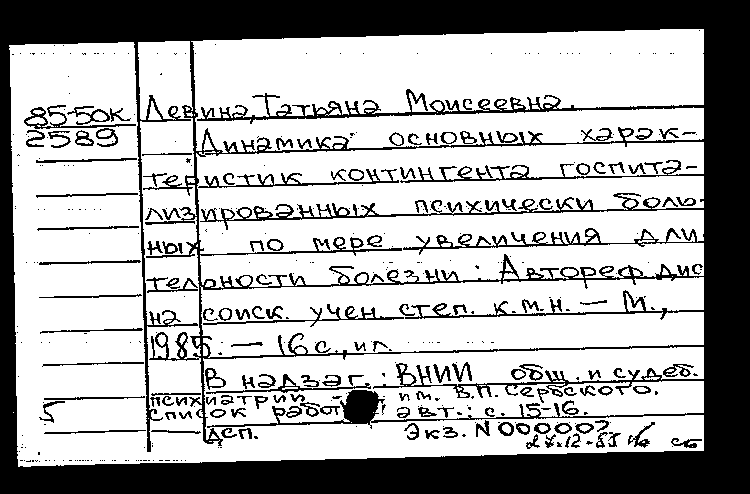 85-50к Левина, Татьяна Моисеевна.
2589 Динамика основных харак-
теристик контингента госпита-
лизированных психически боль-
ных по мере увеличения дли
тельности болезни : Автореф дис
на соиск. учен. степ. к.м.н. — М.,
1985. — 16 с., ил.
В надзаг. : ВНИИ общ. и судеб.
психиатрии им. В.П. Сербского.
5 список работ авт.: с. 15-16.
ДСП. Экз. N 000002